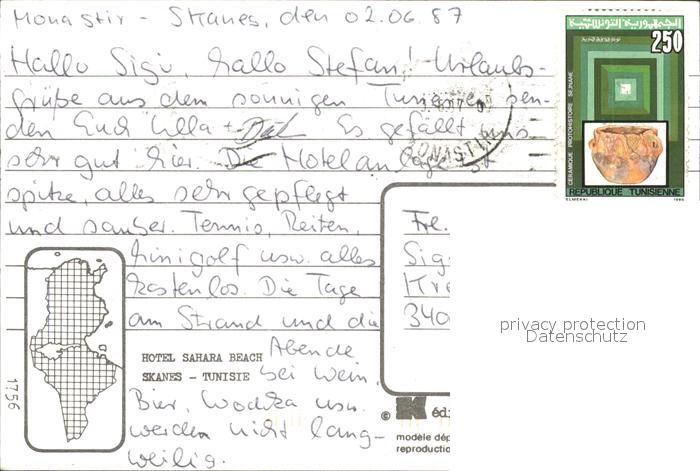 Monastir - Skanes, den 02.06.87
Hallo Sigi, hallo Stefan! Urlaubs-
grüße aus dem sonnigen Tunesien sen-
den Euch Ulla + 
Es gefällt uns
sehr gut hier. Die Hotelanlage ist
spitze, alles sehr gepflegt
und sauber. Tennis, Reiten,
Minigolf usw. alles
kostenlos. Die Tage
am Strand und die
Abende
bei Wein,
Bier, Wodka usw.
werden nicht lang-
weilig.
HOTEL SAHARA BEACH
SKANES - TUNISIE
1756
الجمهورية التونسية
250
CERAMIQUE PROTOHISTOIRE SEJNANE
REPUBLIQUE TUNISIENNE
ELMEKKI 1985
MONASTIR
Fr.
Sig
Kre
340
privacy protection
Datenschutz
© éd
modèle dép
reproductio